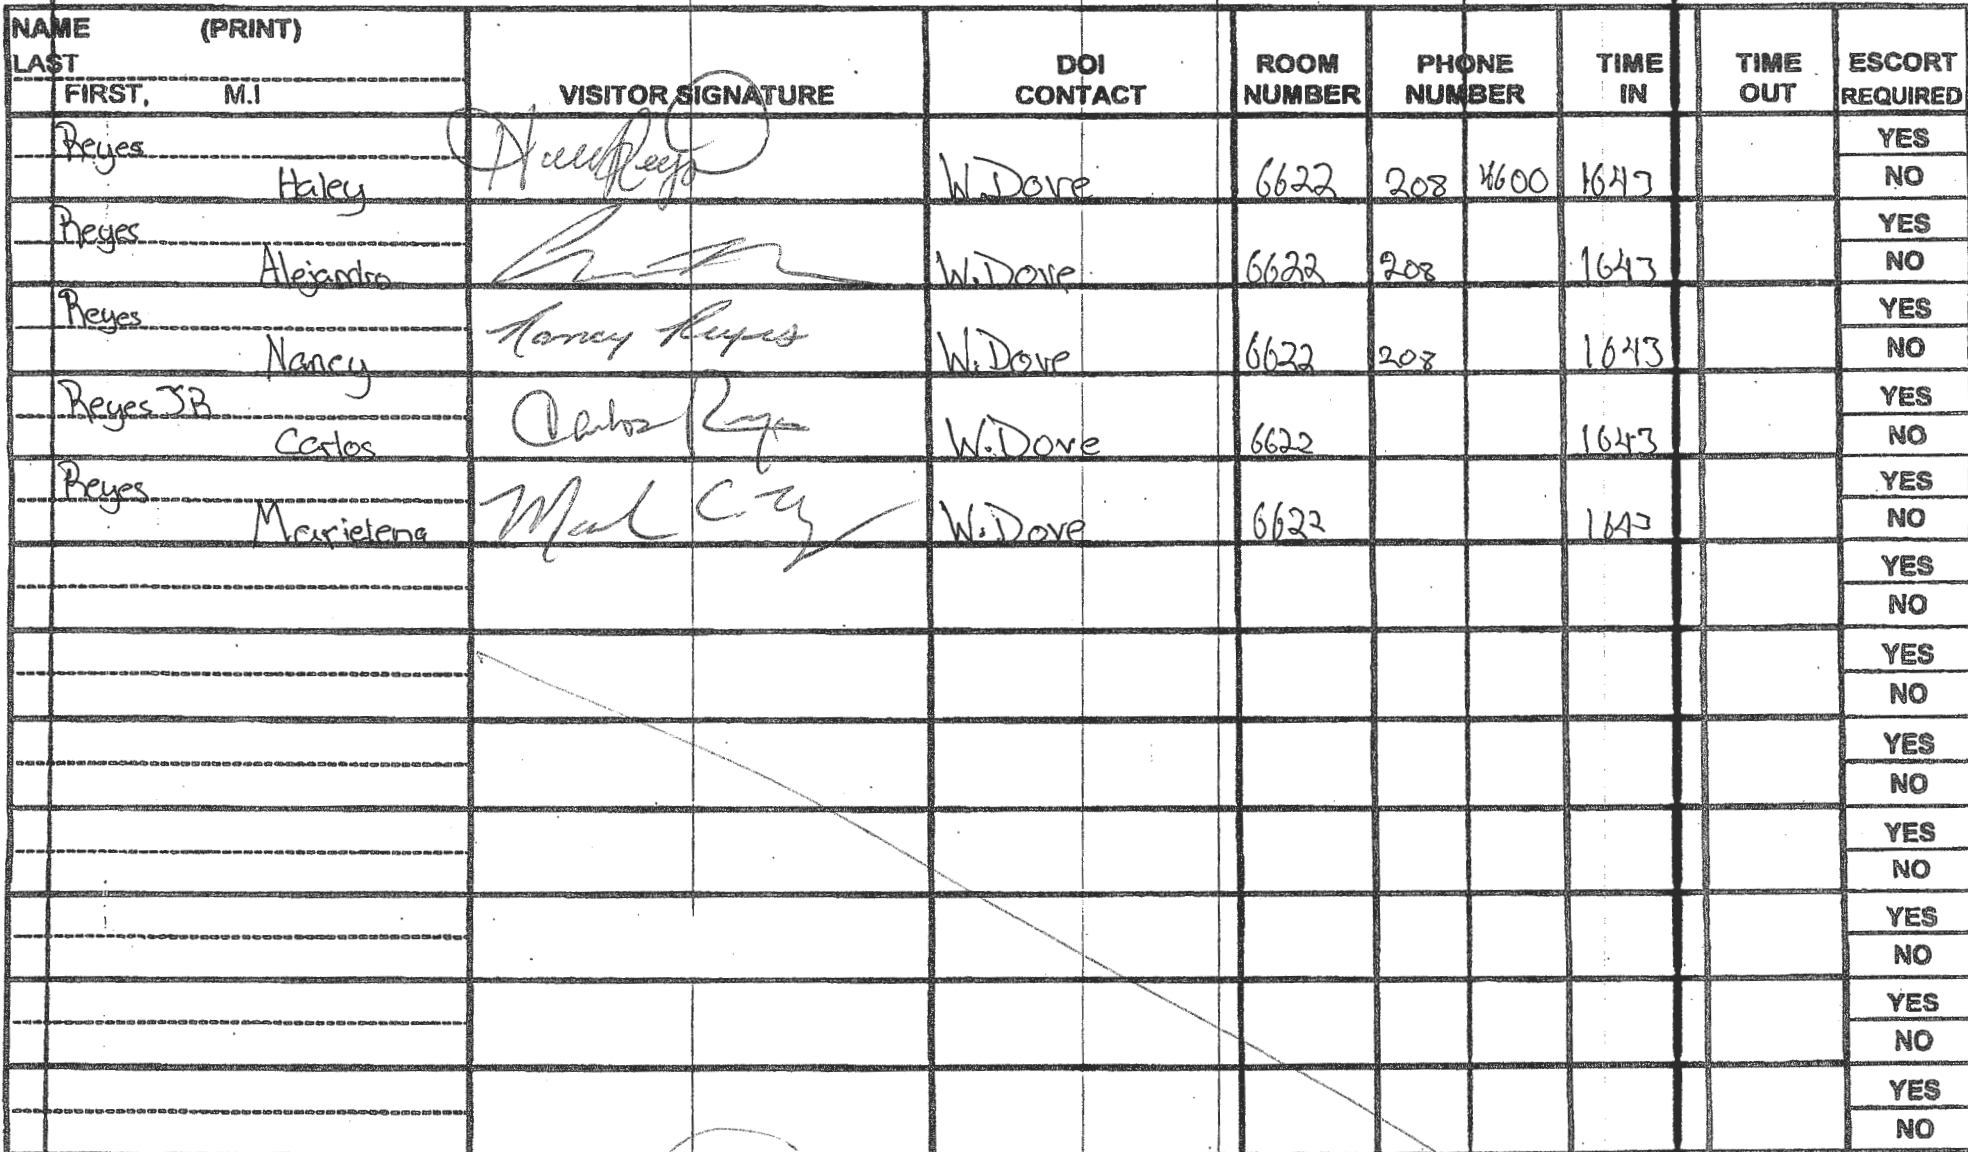 NAME (PRINT)
LAST
FIRST, M.I
VISITOR SIGNATURE
DOI CONTACT
ROOM NUMBER
PHONE NUMBER
TIME IN
TIME OUT
ESCORT REQUIRED
Reyes
Haley W.Dove 6622 208 4600 1643
YES
NO
Reyes
Alejandro W.Dove 6622 208 1643
YES
NO
Reyes
Nancy Nancy Reyes W.Dove 6622 208 1643
YES
NO
Reyes JR
Carlos Carlos Reyes W.Dove 6622 1643
YES
NO
Reyes
Marielena W.Dove 6622 1643
YES
NO
YES
NO
YES
NO
YES
NO
YES
NO
YES
NO
YES
NO
YES
NO